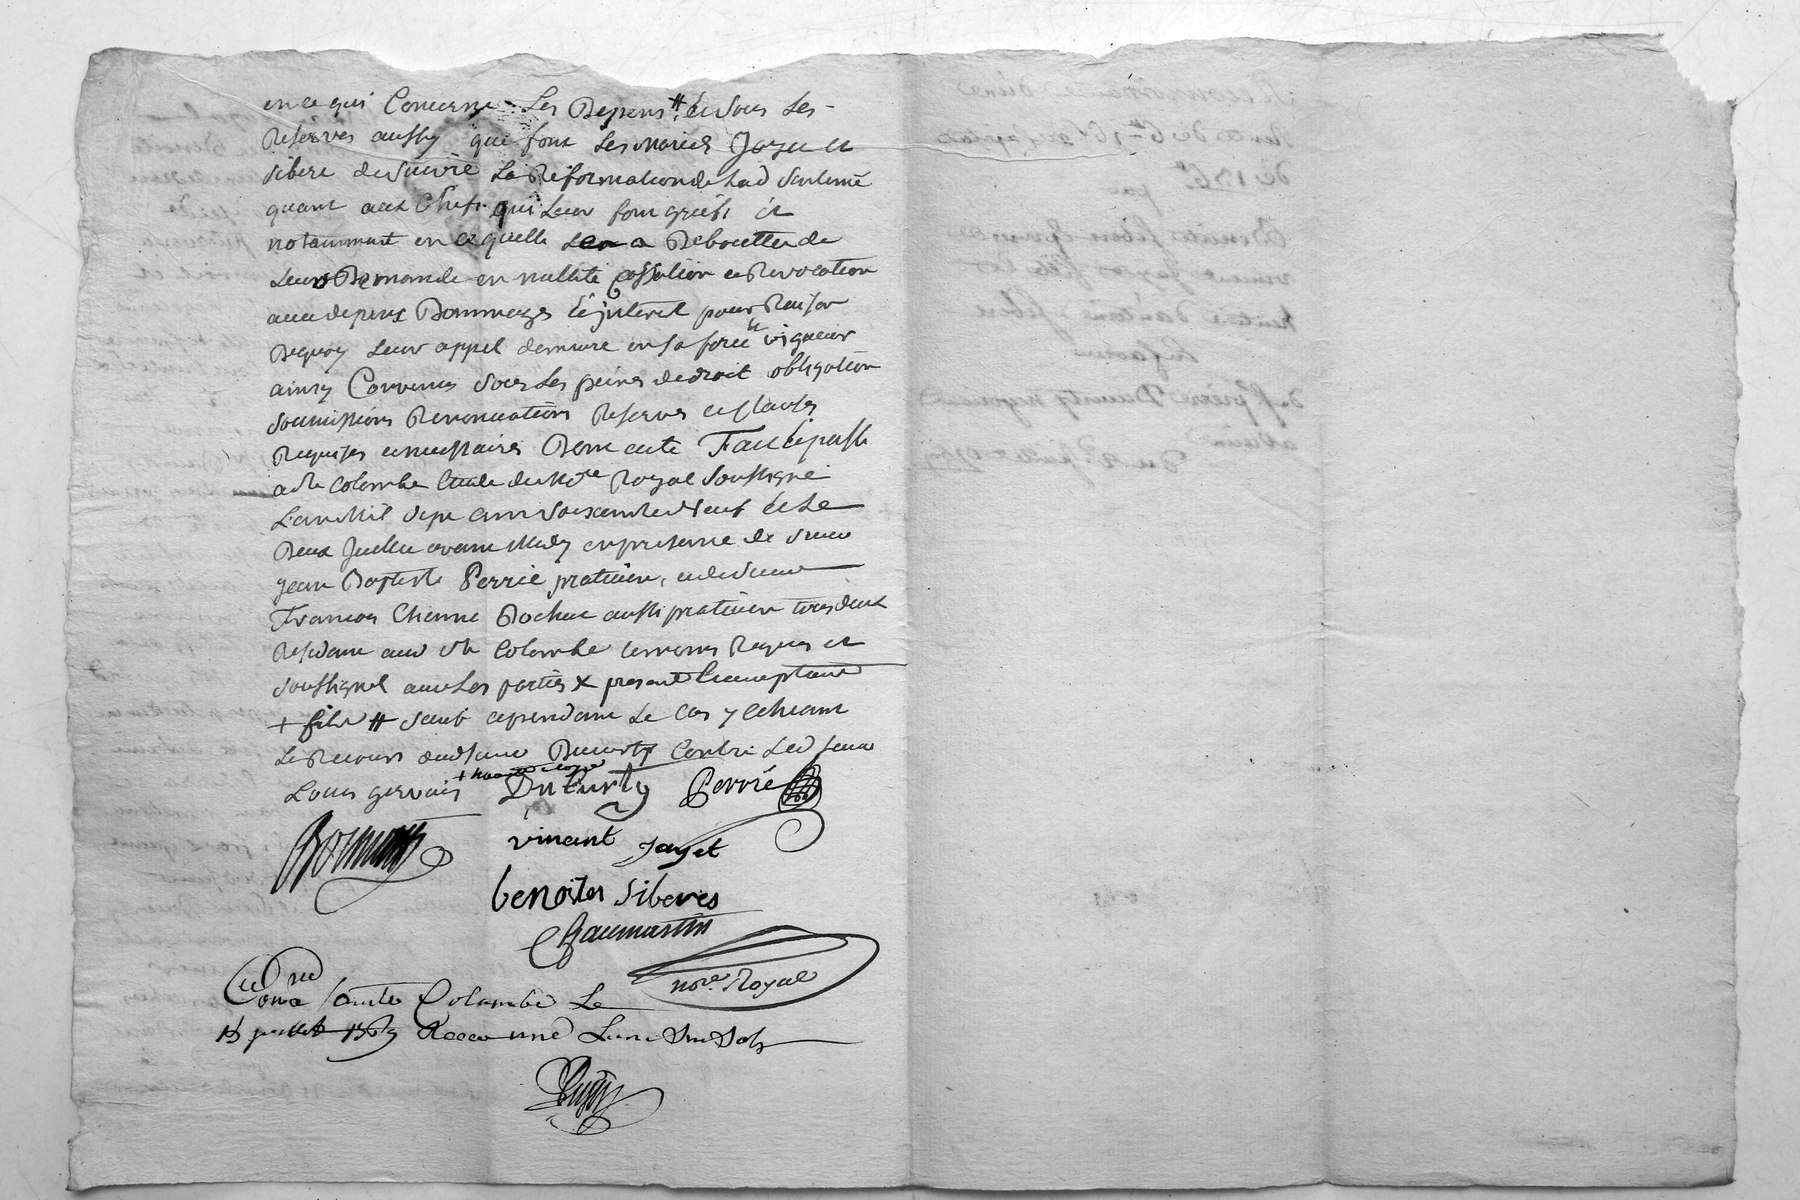 en ce qui Concerne Les Depens # et sous Les
Reserves aussy que font Les mariés Jayet et
sibere de suivre La Reformation de Lad sentence
quant aux Chefs qui Leur font griefs et
notamment en ce quelle Les a Deboutter de
Leurs Demande en nullité cassation et Revocation
aux depens Dommages et interet pour Raison
Dequoy Leur appel demeure en sa force et vigueur
ainsy Convenus sous Les peines de droit obligation
soumissions Renonciations Reserves et clauses
Requises et necessaires Dont acte Fait et passé
a ste Colombe Etude du no.re Royal soussigné
L'an Mil sept cent soixante Neuf et Le
Deux Juillet avant Midy en presence de sieur
jean Baptiste Perrié praticien, et de sieur
Francois Etienne Rochet aussi praticien tous deux
Residant aud ste Colombe temoins Requis et
soussignés avec Les parties x present
+ fils # sauf cependant Le Cas y echeant
Le Recours dud sieur Ducurty Contre Led sieur
Louis gervais
DuCurty Perrié
vinant Jayet
benoites siberes
Gaumartin
no.re Royal
sainte Colombe Le
15 juillet 1769 Recu une Livre Six Sols